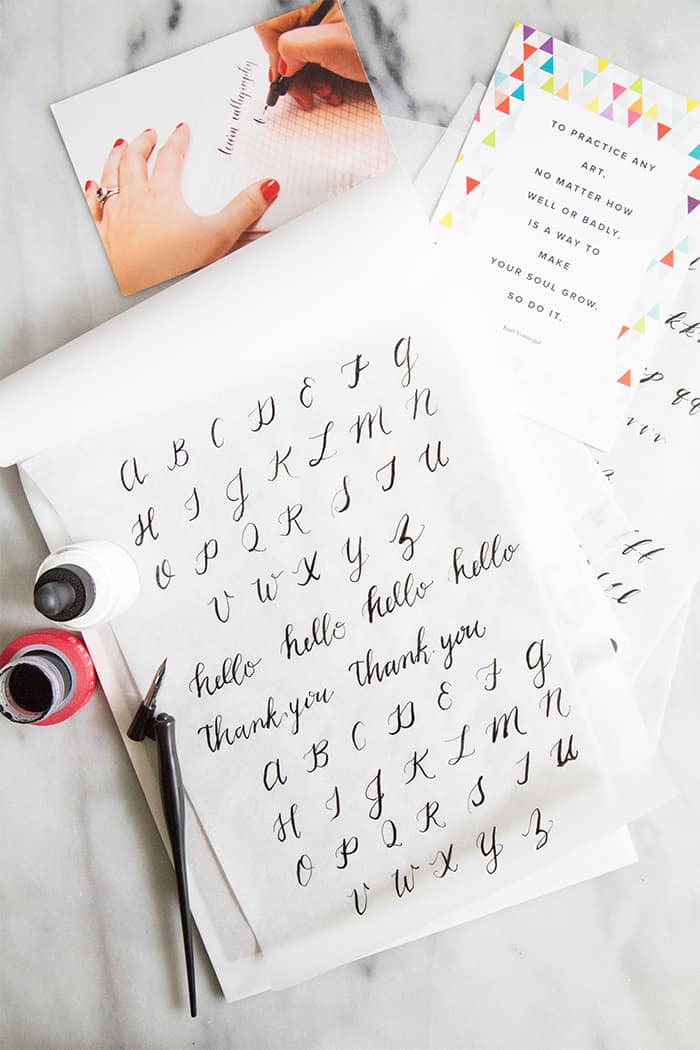 learn calligraphy
TO PRACTICE ANY
ART,
NO MATTER HOW
WELL OR BADLY,
IS A WAY TO
MAKE
YOUR SOUL GROW.
SO DO IT.
Kurt Vonnegut
A B C D E F G
H I J K L M N
O P Q R S T U
V W X Y Z
hello hello hello hello
thank you thank you
A B C D E F G
H I J K L M N
O P Q R S T U
V W X Y Z